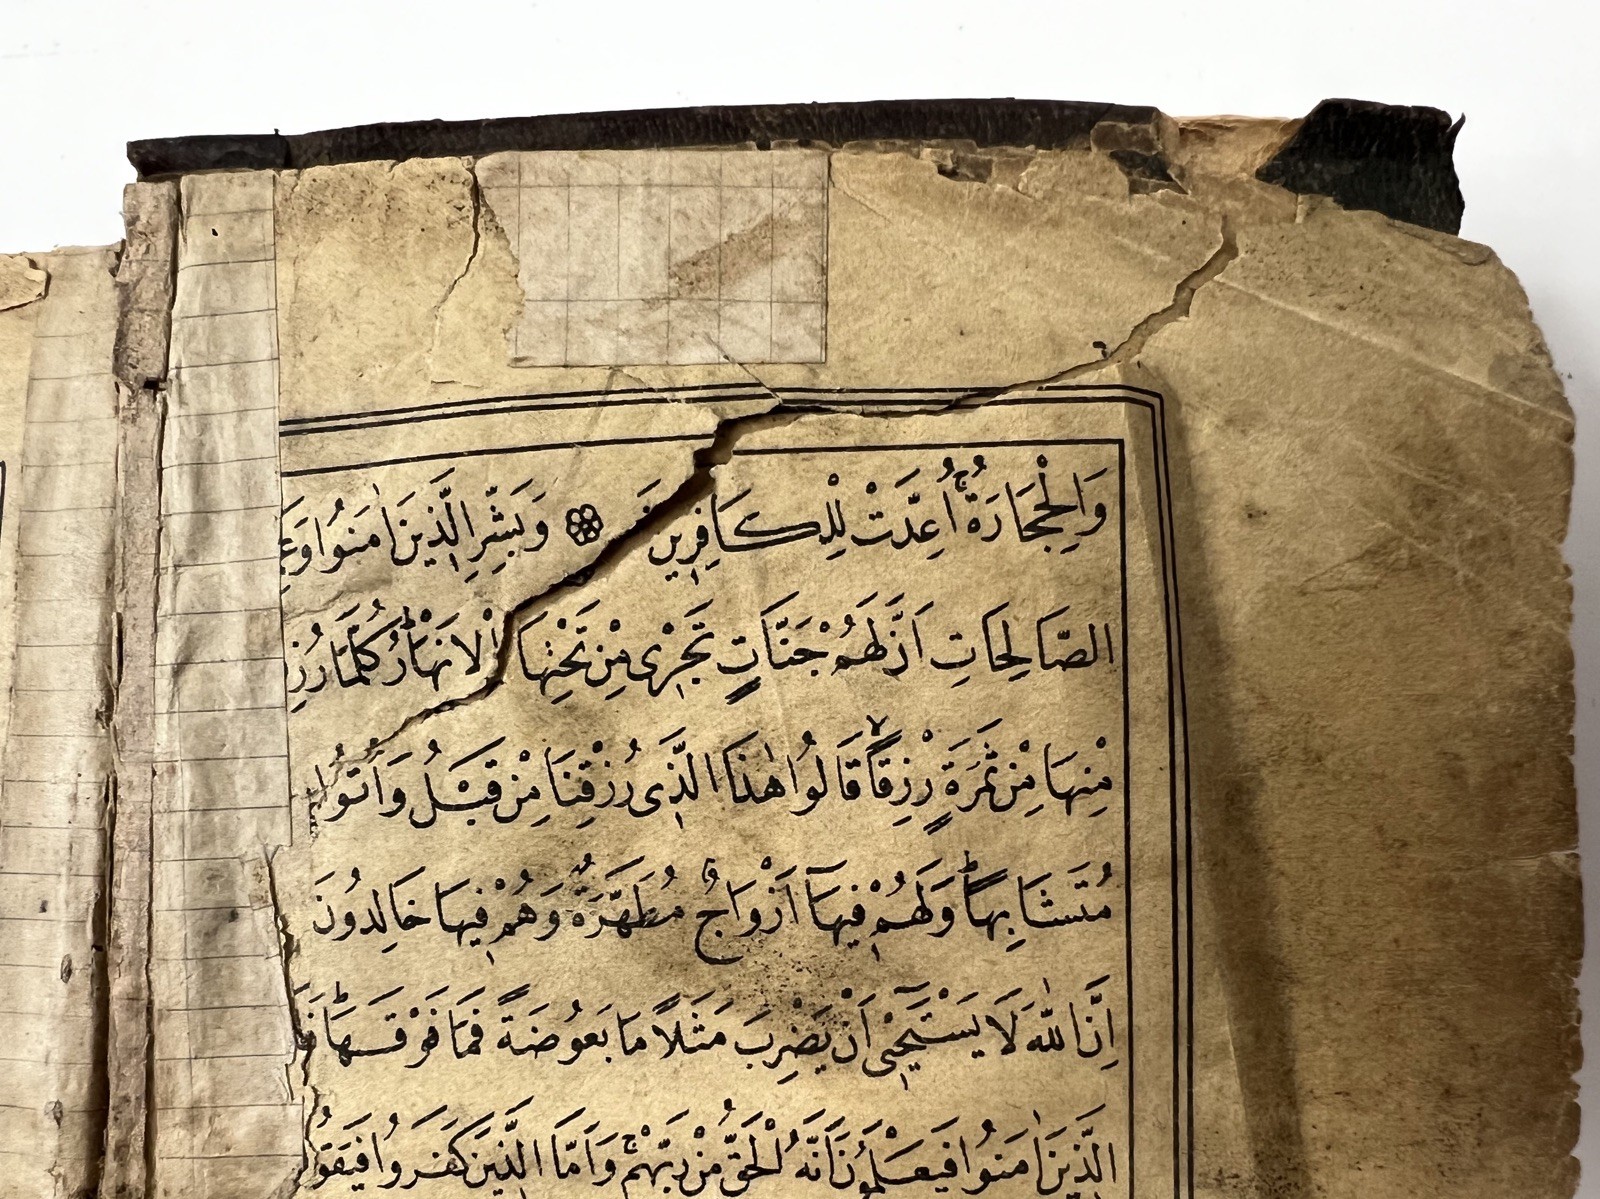 وَالْحِجَارَةُ اُعِدَّتْ لِلْكَافِرِينَ وَبَشِّرِ الَّذِينَ اٰمَنُوا
الصَّالِحَاتِ اَنَّ لَهُمْ جَنَّاتٍ تَجْرِى مِنْ تَحْتِهَا الْاَنْهَارُ كُلَّمَا
مِنْهَا مِنْ ثَمَرَةٍ رِزْقًا قَالُوا هٰذَا الَّذِى رُزِقْنَا مِنْ قَبْلُ وَاُتُوا
مُتَشَابِهًا وَلَهُمْ فِيهَآ اَزْوَاجٌ مُطَهَّرَةٌ وَهُمْ فِيهَا خَالِدُونَ
اِنَّ اللّٰهَ لَا يَسْتَحْيِى اَنْ يَضْرِبَ مَثَلًا مَا بَعُوضَةً فَمَا فَوْقَهَا
الَّذِينَ اٰمَنُوا فَيَعْلَمُونَ اَنَّهُ الْحَقُّ مِنْ رَبِّهِمْ وَاَمَّا الَّذِينَ كَفَرُوا